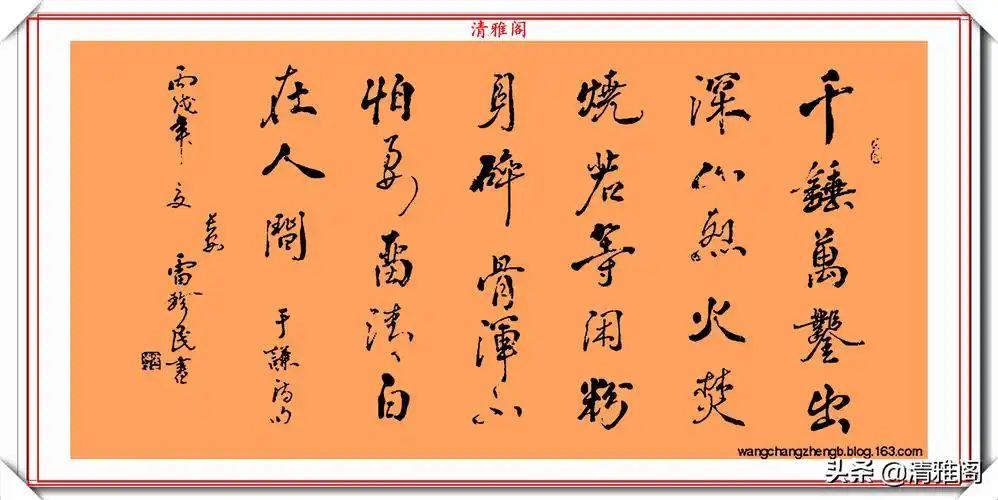 清雅阁
千錘萬鑿出
深山烈火焚
燒若等閑粉
身碎骨渾不
怕要留清白
在人間 于謙詩句
丙戌年夏
長安
雷珍民書
wangchangzhengb.blog.163.com
头条 @清雅阁